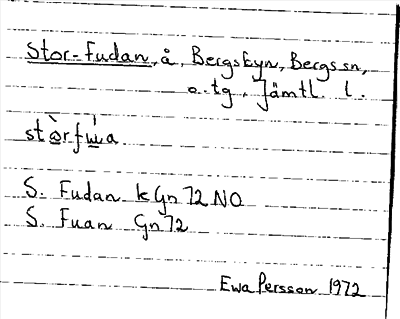 Stor-Fudan, å, Bergsbyn, Bergs sn,
o. tg, Jämtl. l.
S. Fudan k Gn 72 NO
S. Fuan Gn 72
Ewa Persson 1972